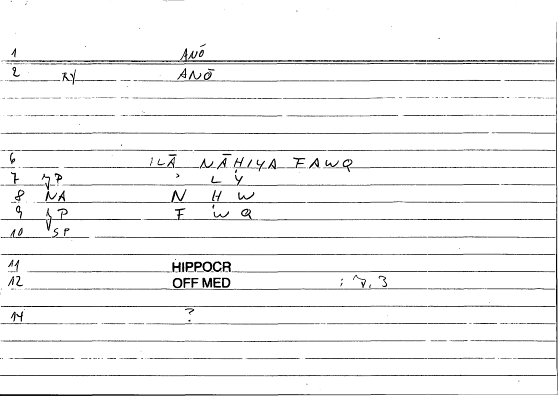 1 ANŌ
2 RY ANŌ
6 ILĀ NĀḤIYA FAWQ
7 P ʾ L Y
8 NA N Ḥ W
9 P F W Q
10 SP
11 HIPPOCR
12 OFF MED : 3
14 ?